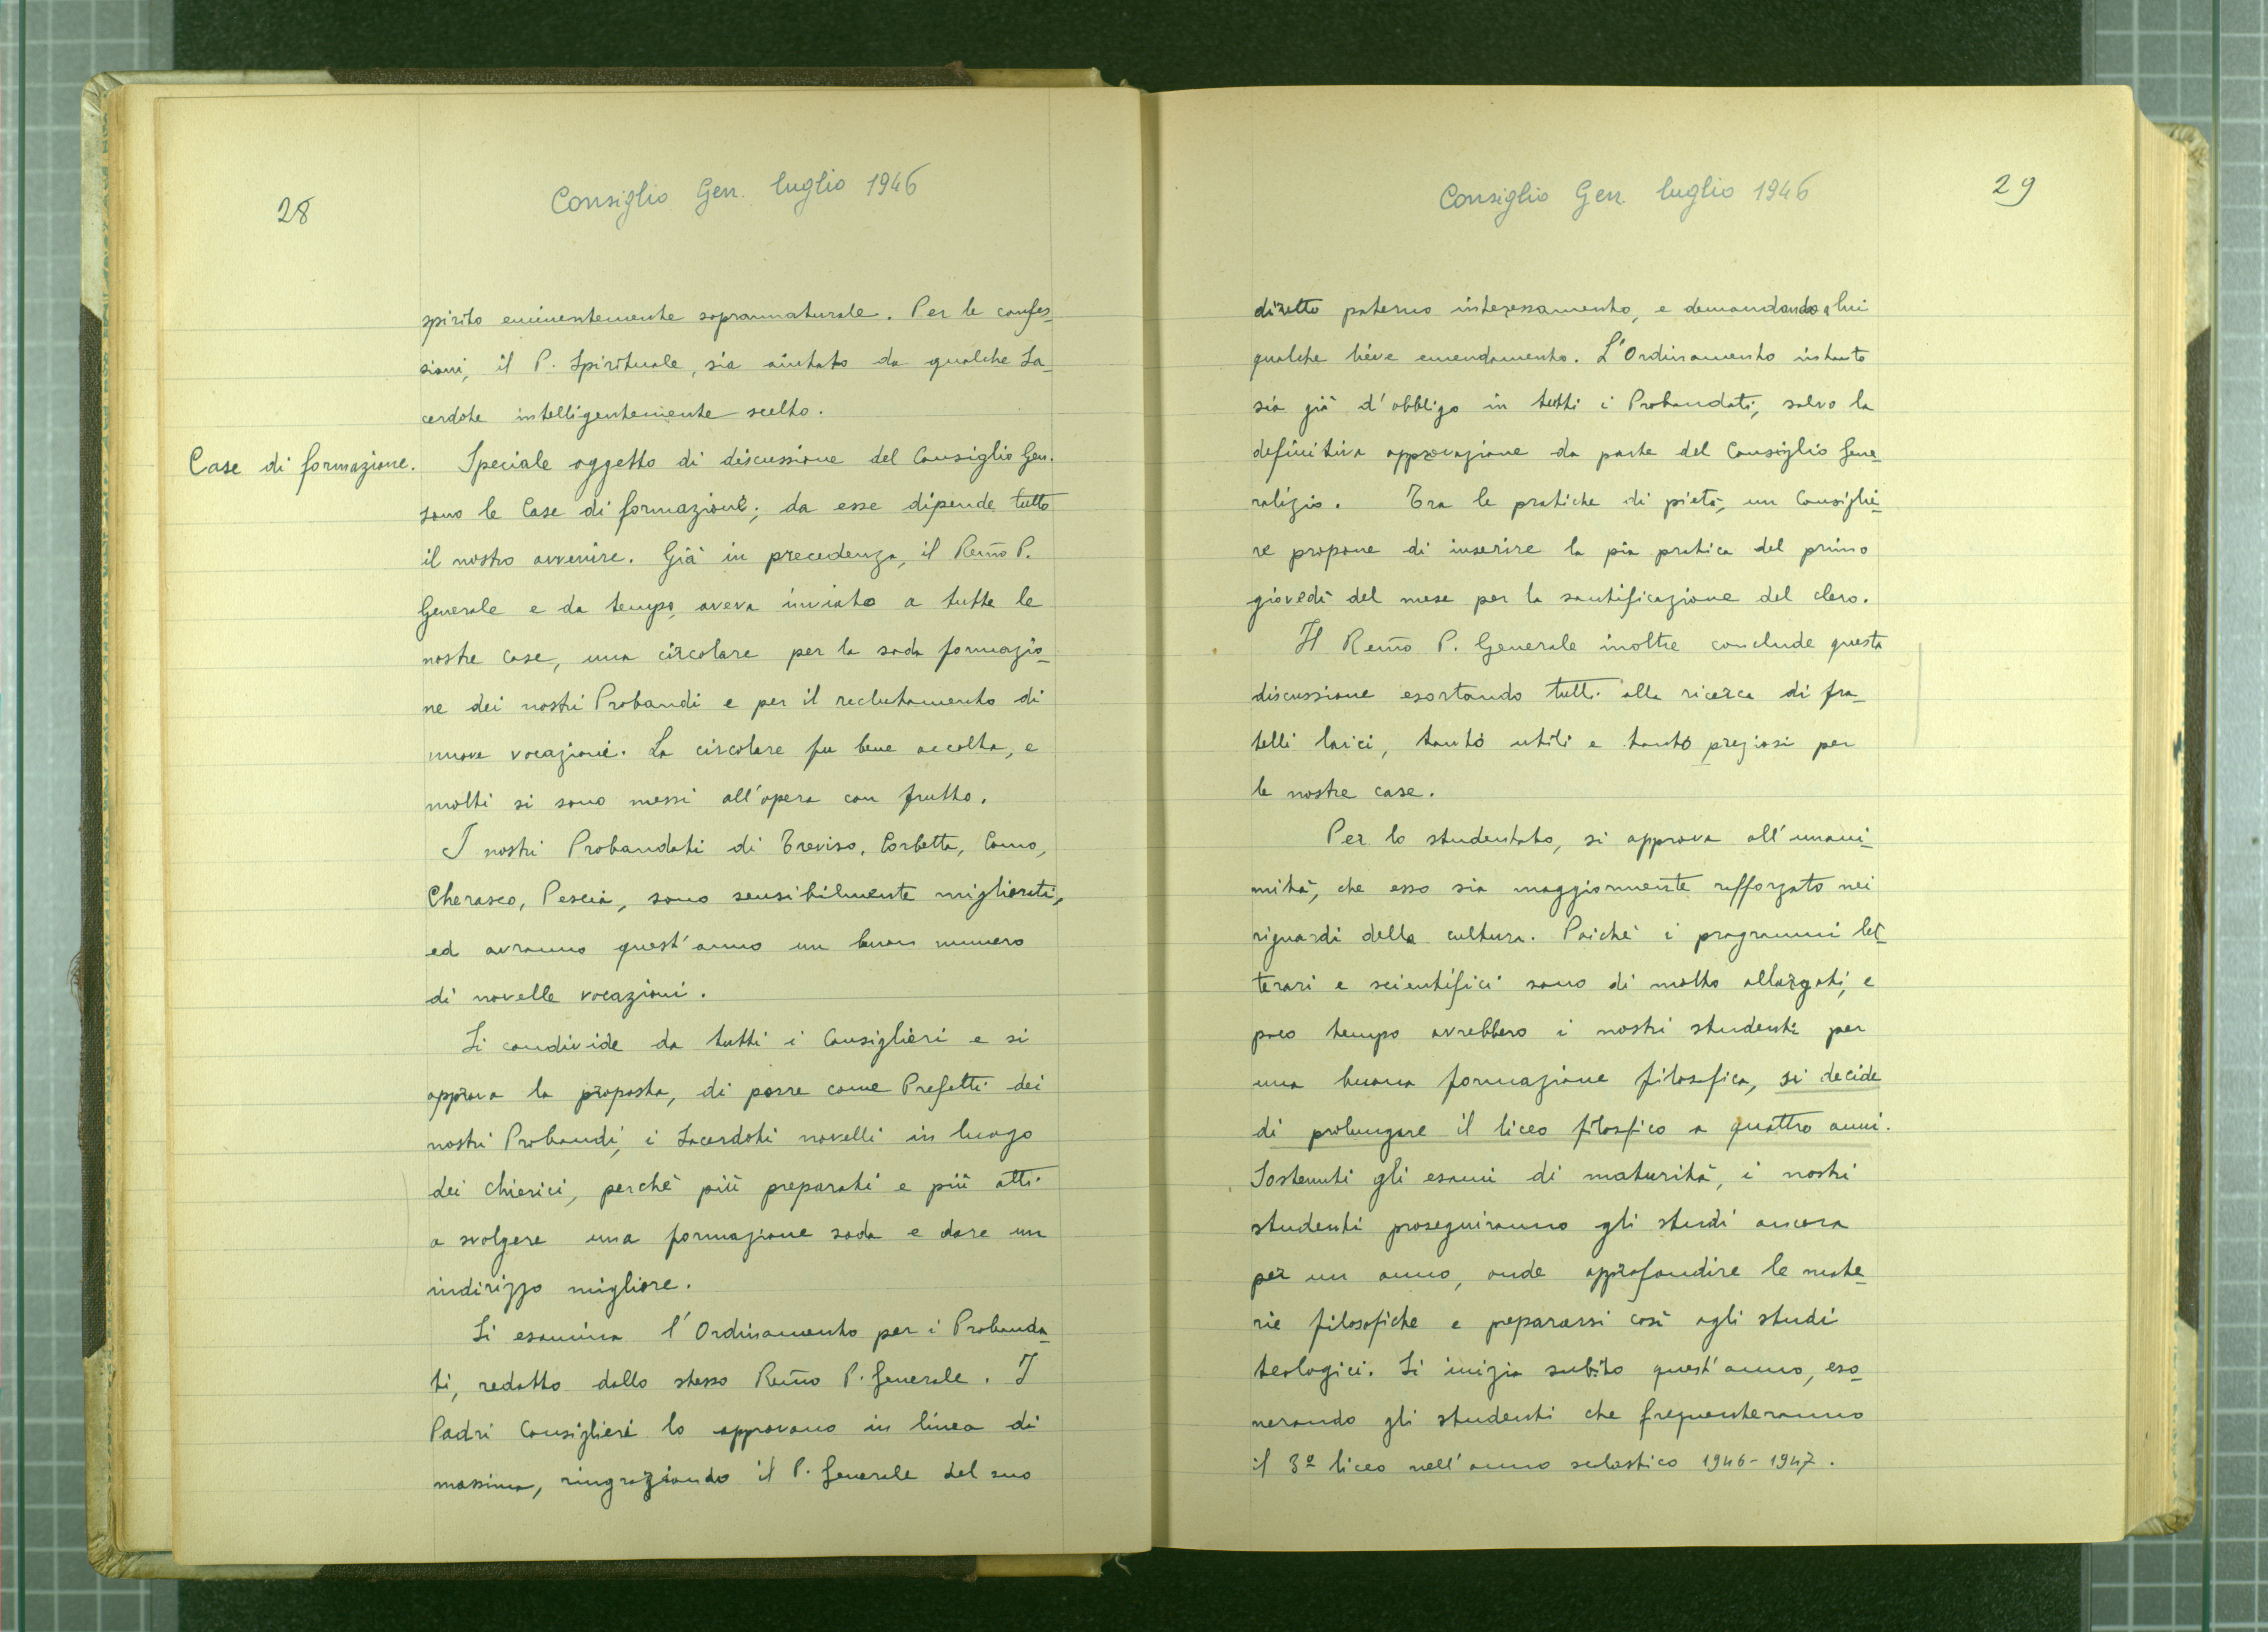 28
Consiglio Gen. luglio 1946
spirito eminentemente soprannaturale. Per le confes-
sioni, il P. Spirituale, sia aiutato da qualche Sa-
cerdote intelligentemente scelto.
Case di formazione.
Speciale oggetto di discussione del Consiglio Gen.
sono le Case di formazione; da esse dipende tutto
il nostro avvenire. Già in precedenza, il Rem̃o P.
Generale e da tempo, aveva inviato a tutte le
nostre case, una circolare per la soda formazio-
ne dei nostri Probandi e per il reclutamento di
nuove vocazioni. La circolare fu bene accolta, e
molti si sono messi all'opera con frutto.
I nostri Probandati di Treviso, Corbetta, Como,
Cherasco, Pescia, sono sensibilmente migliorati,
ed avranno quest'anno un buon numero
di novelle vocazioni.
Si condivide da tutti i Consiglieri e si
approva la proposta, di porre come Prefetti dei
nostri Probandi, i Sacerdoti novelli in luogo
dei chierici, perchè più preparati e più atti
a svolgere una formazione soda e dare un
indirizzo migliore.
Si esamina l'Ordinamento per i Probanda-
ti, redatto dallo stesso Rem̃o P. Generale. I
Padri Consiglieri lo approvano in linea di
massima, ringraziando il P. Generale del suo
Consiglio Gen. luglio 1946
29
diretto paterno interessamento, e demandando a lui
qualche lieve emendamento. L'Ordinamento intanto
sia già d'obbligo in tutti i Probandati, salvo la
definitiva approvazione da parte del Consiglio Gene-
ralizio. Tra le pratiche di pietà, un Consiglie-
re propone di inserire la pia pratica del primo
giovedì del mese per la santificazione del clero.
Il Rem̃o P. Generale inoltre conclude questa
discussione esortando tutti alla ricerca di fra-
telli laici, tanto utili e tanto preziosi per
le nostre case.
Per lo studentato, si approva all'unani-
mità, che esso sia maggiormente rafforzato nei
riguardi della cultura. Poichè i programmi let-
terari e scientifici sono di molto allargati, e
poco tempo avrebbero i nostri studenti per
una buona formazione filosofica, si decide
di prolungare il liceo filosfico a quattro anni.
Sostenuti gli esami di maturità, i nostri
studenti proseguiranno gli studi ancora
per un anno, onde approfondire le mate-
rie filosofiche e prepararsi così agli studi
teologici. Si inizia subito quest'anno, eso-
nerando gli studenti che frequenteranno
il 3º liceo nell'anno scolastico 1946-1947.